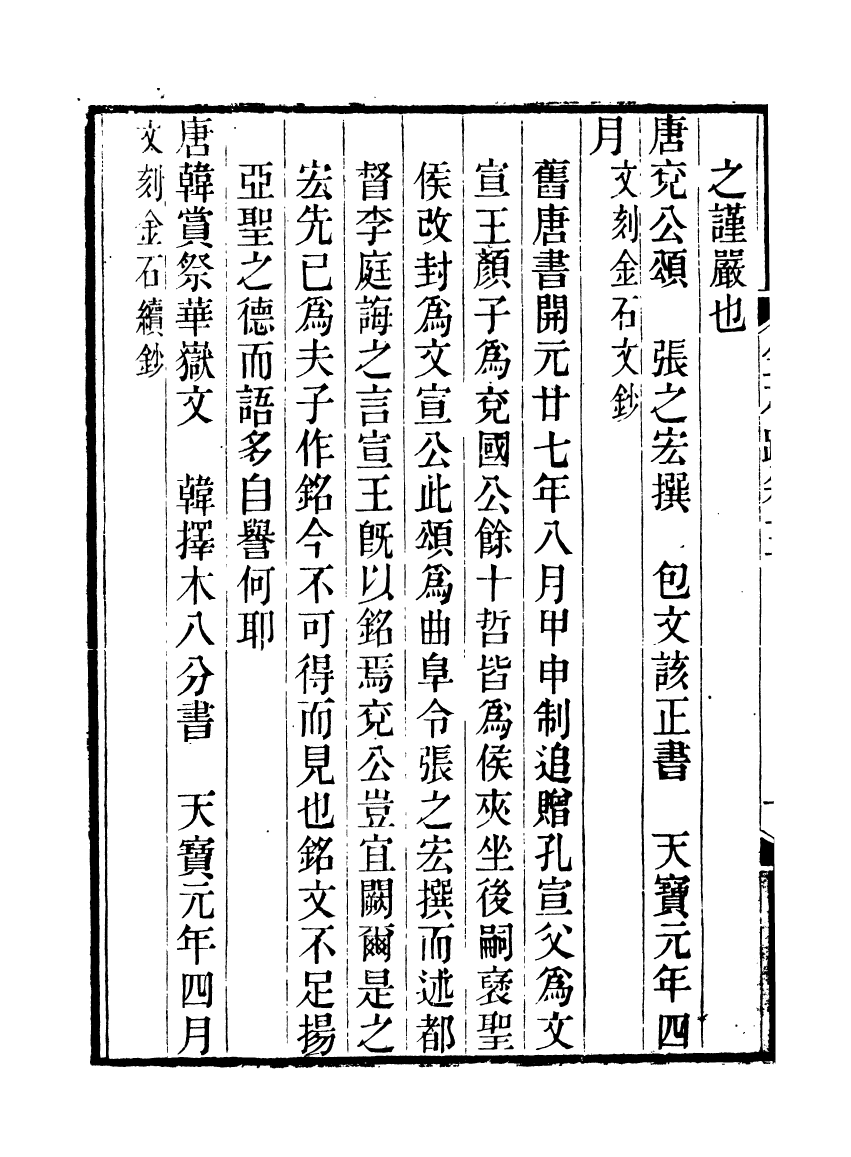 之謹嚴也
唐兗公頌　張之宏撰　包文該正書　天寶元年四
月文刻金石文鈔
舊唐書開元廿七年八月甲申制追贈孔宣父爲文
宣王顏子爲兗國公餘十哲皆爲侯夾坐後嗣褒聖
侯改封爲文宣公此頌爲曲阜令張之宏撰而述都
督李庭誨之言宣王旣以銘焉兗公豈宜闕爾是之
宏先已爲夫子作銘今不可得而見也銘文不足揚
亞聖之德而語多自譽何耶
唐韓賞祭華嶽文　韓擇木八分書　天寶元年四月
文刻金石續鈔